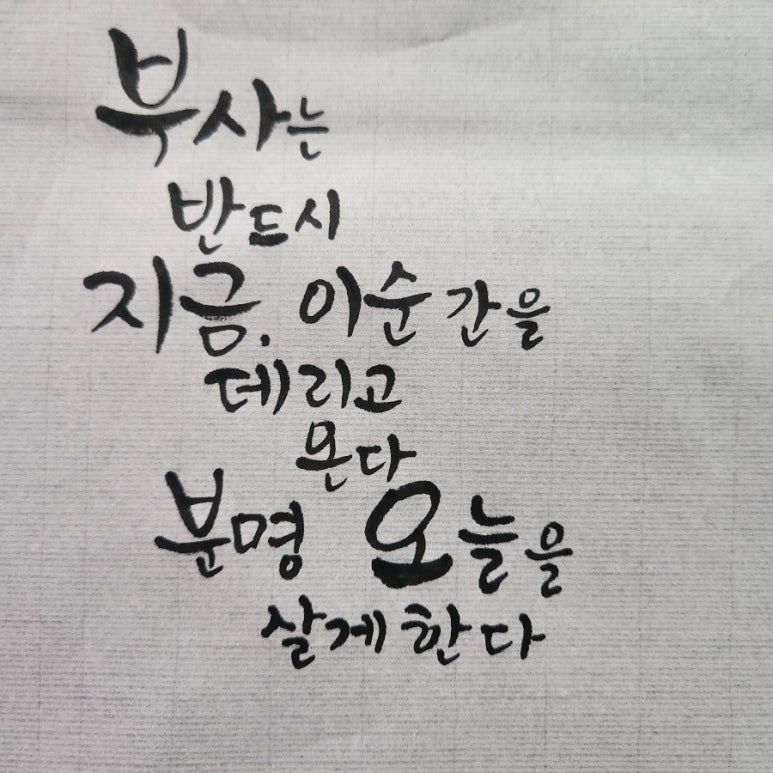 부사는
반드시
지금. 이순간을
데리고
온다
분명 오늘을
살게한다